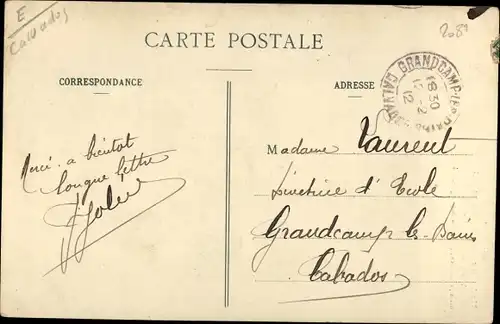 E
Calvados
CARTE POSTALE
CORRESPONDANCE
ADRESSE
GRANDCAMP-LES-BAINS
CALVADOS
18 30
12
Merci. a bientôt
longue lettre
Madame Laurent
Directrice d'Ecole
Grandcamp les Bains
Calvados